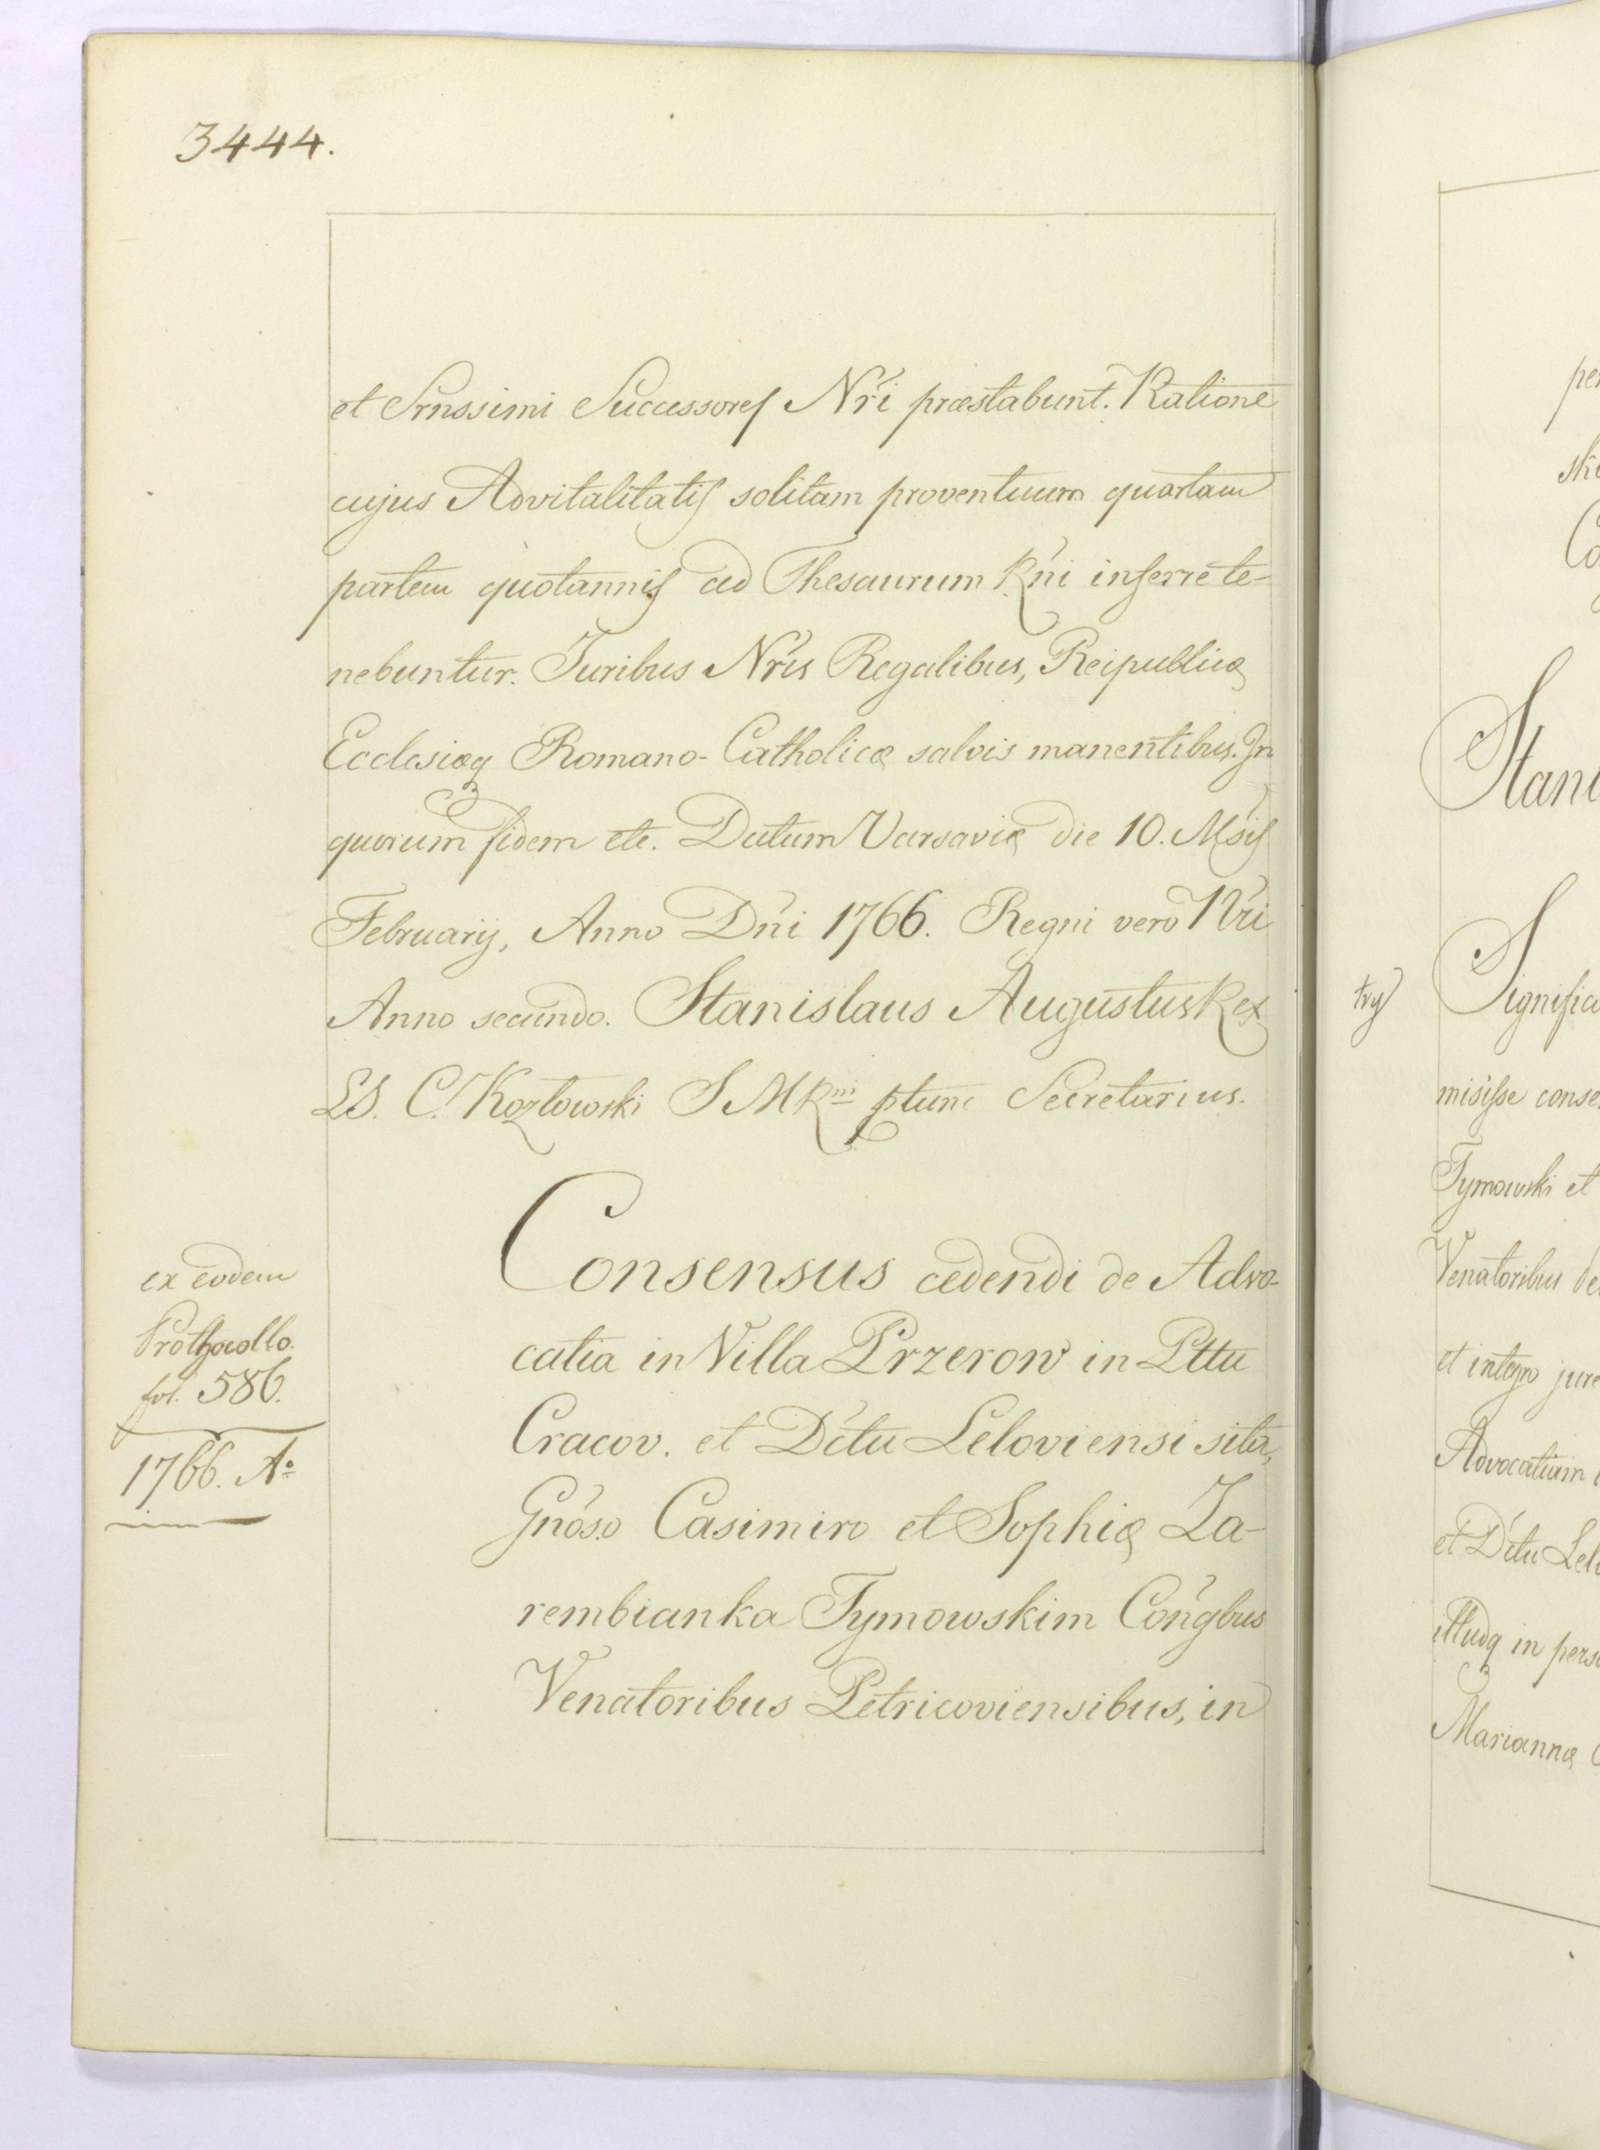 3444.
et Srnssimi Successores Nri præstabunt. Ratione
cujus Advitalitatis solitam proventuum quartam
partem quotannis ad Thesaurum Rni inferre te-
nebuntur. Juribus Nris Regalibus, Reipublicæ
Ecclesiæq Romano-Catholicæ salvis manentibus. In
quorum fidem etc. Datum Varsaviæ die 10. Msis
Februarij, Anno Dni 1766. Regni vero Nri
Anno secundo. Stanislaus Augustus Rex
LS. C. Kozłowski S M Rni ptunc Secretarius.
ex eodem
Prothocollo.
fol. 586.
1766. Ao
Consensus cedendi de Advo-
catia in Villa Przerow in Pttu
Cracov. et Dctu Leloviensi sita,
Gnoso Casimiro et Sophiæ Za-
rembianka Tymowskim Congbus
Venatoribus Petricoviensibus, in
per
ski
Co
Stani
try
Significa
misisse conse
Tymowski et
Venatoribus de
et integro jure
Advocatiam
et Dctu Lelo
illudq in perso
Mariannæ